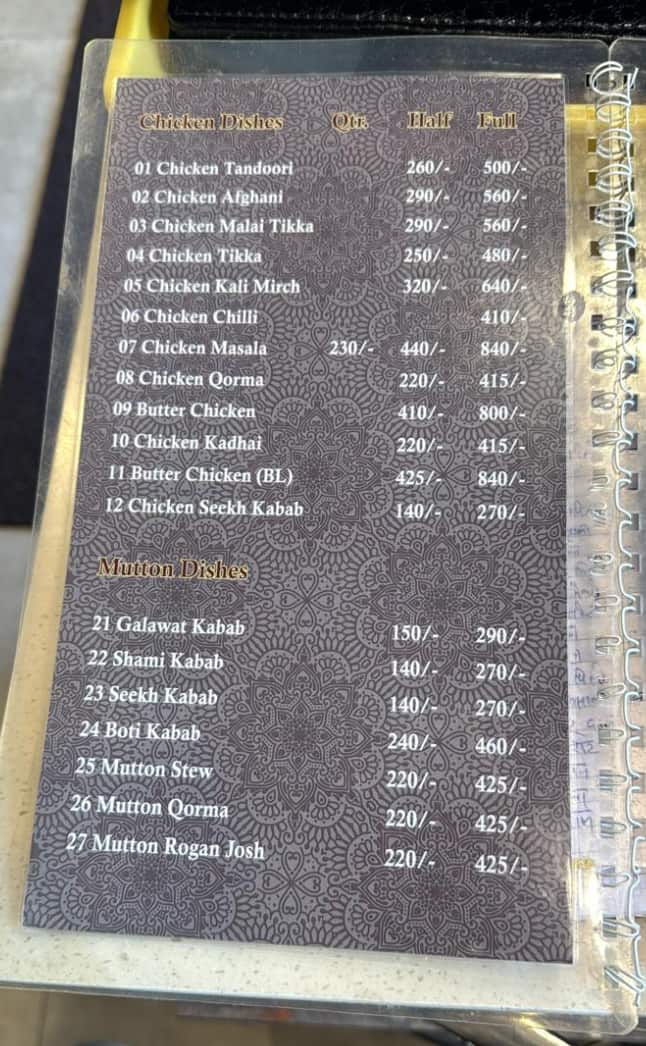 Chicken Dishes Qtr. Half Full
01 Chicken Tandoori 260/- 500/-
02 Chicken Afghani 290/- 560/-
03 Chicken Malai Tikka 290/- 560/-
04 Chicken Tikka 250/- 480/-
05 Chicken Kali Mirch 320/- 640/-
06 Chicken Chilli 410/-
07 Chicken Masala 230/- 440/- 840/-
08 Chicken Qorma 220/- 415/-
09 Butter Chicken 410/- 800/-
10 Chicken Kadhai 220/- 415/-
11 Butter Chicken (BL) 425/- 840/-
12 Chicken Seekh Kabab 140/- 270/-
Mutton Dishes
21 Galawat Kabab 150/- 290/-
22 Shami Kabab 140/- 270/-
23 Seekh Kabab 140/- 270/-
24 Boti Kabab 240/- 460/-
25 Mutton Stew 220/- 425/-
26 Mutton Qorma 220/- 425/-
27 Mutton Rogan Josh 220/- 425/-